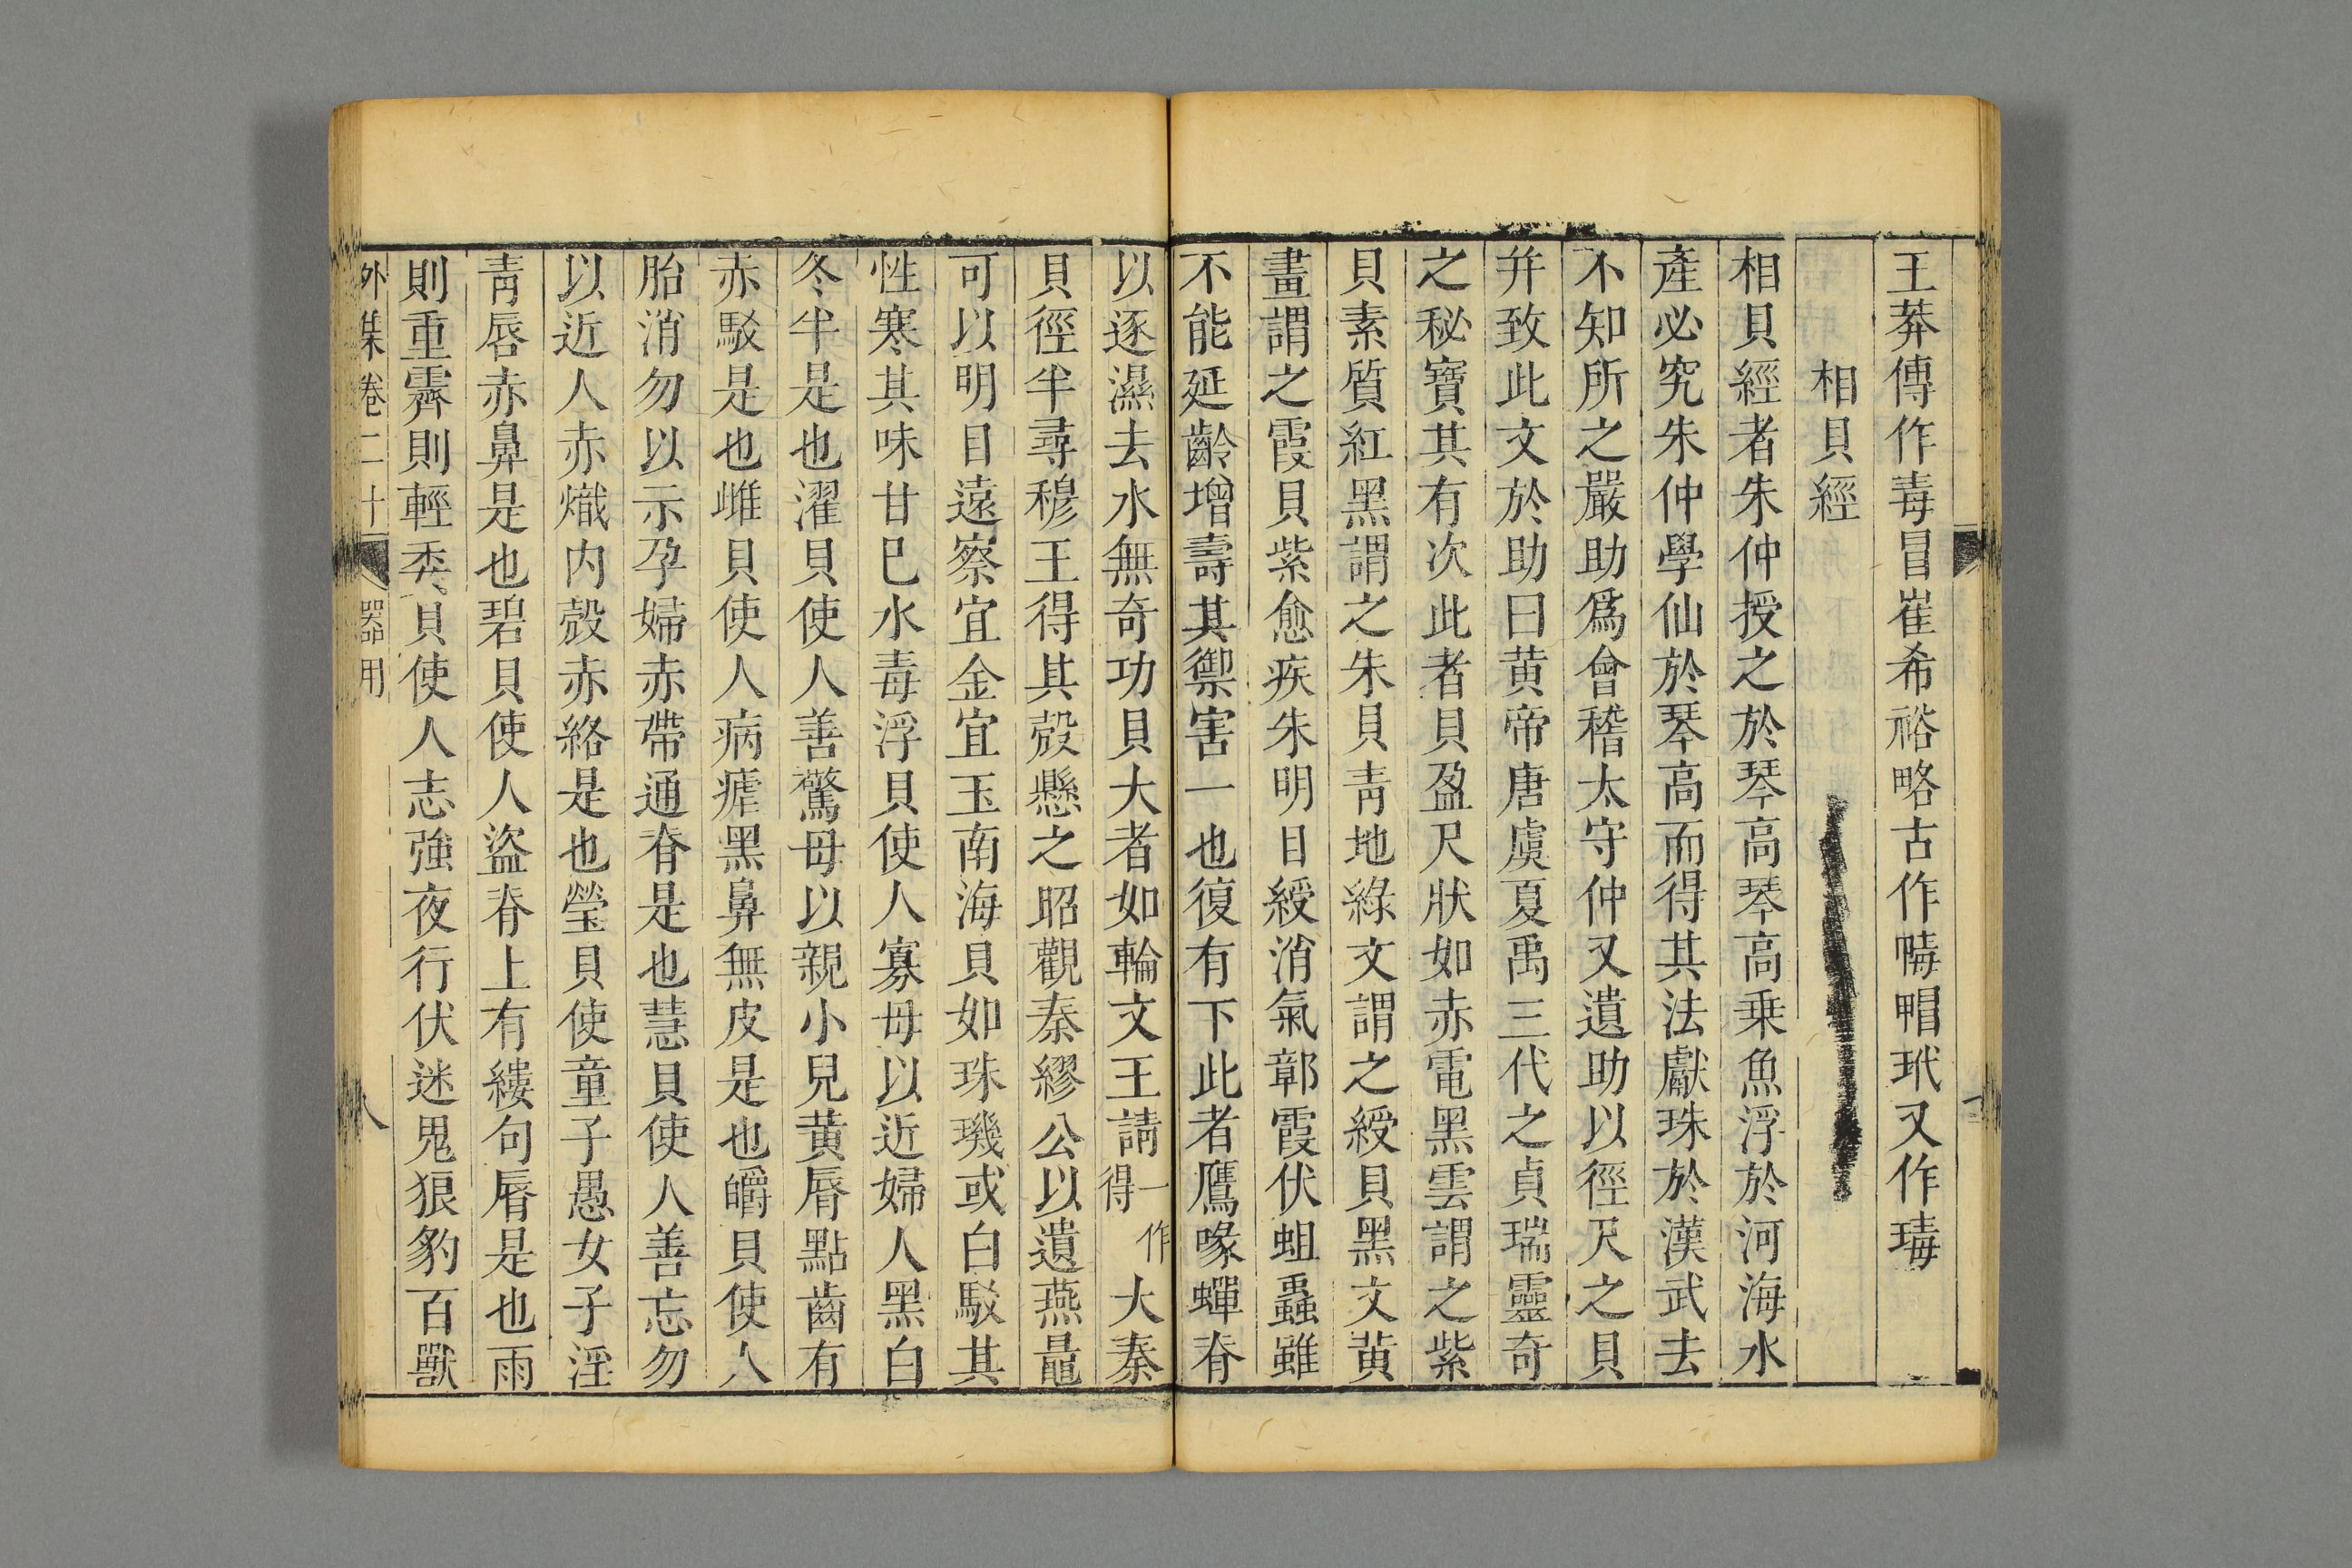 王莽傳作毒冒崔希裕略古作䗟㡌玳又作瑇
相貝經
相貝經者朱仲授之於琴高琴高乗魚浮於河海水
產必究朱仲學仙於琴高而得其法獻珠於漢武去
不知所之嚴助爲會稽太守仲又遺助以徑尺之貝
并致此文於助曰黄帝唐虞夏禹三代之貞瑞靈奇
之秘寶其有次此者貝盈尺狀如赤電黑雲謂之紫
貝素質紅黑謂之朱貝靑地綠文謂之綬貝黑文黄
畫謂之霞貝紫愈疾朱明目綬消氣鄣霞伏蛆蟲雖
不能延齡增壽其禦害一也復有下此者鷹喙蟬脊
以逐濕去水無奇功貝大者如輪文王請一作得大秦
貝徑半尋穆王得其殻懸之昭觀秦繆公以遺燕鼂
可以明目遠察宜金宜玉南海貝如珠璣或白駁其
性寒其味甘巳水毒浮貝使人寡毋以近婦人黑白
冬半是也濯貝使人善驚毋以親小兒黄脣點齒有
赤駁是也雌貝使人病瘧黑鼻無皮是也皭貝使人
胎消勿以示孕婦赤帶通脊是也慧貝使人善忘勿
以近人赤熾内殻赤絡是也瑩貝使童子愚女子淫
靑唇赤鼻是也碧貝使人盜脊上有縷句脣是也雨
則重霽則輕委貝使人志強夜行伏迷鬼狼豹百獸
外集卷二十 器用 八